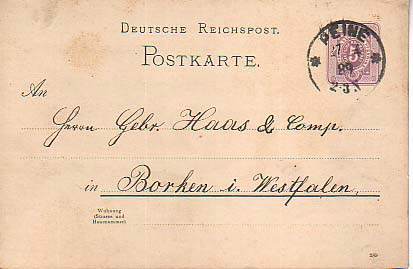 DEUTSCHE REICHSPOST.
POSTKARTE.
PEINE
89
2-3
5
An
Herrn Gebr. Haas & Comp.
in Borken i. Westfalen,
Wohnung
(Strasse und
Hausnummer)